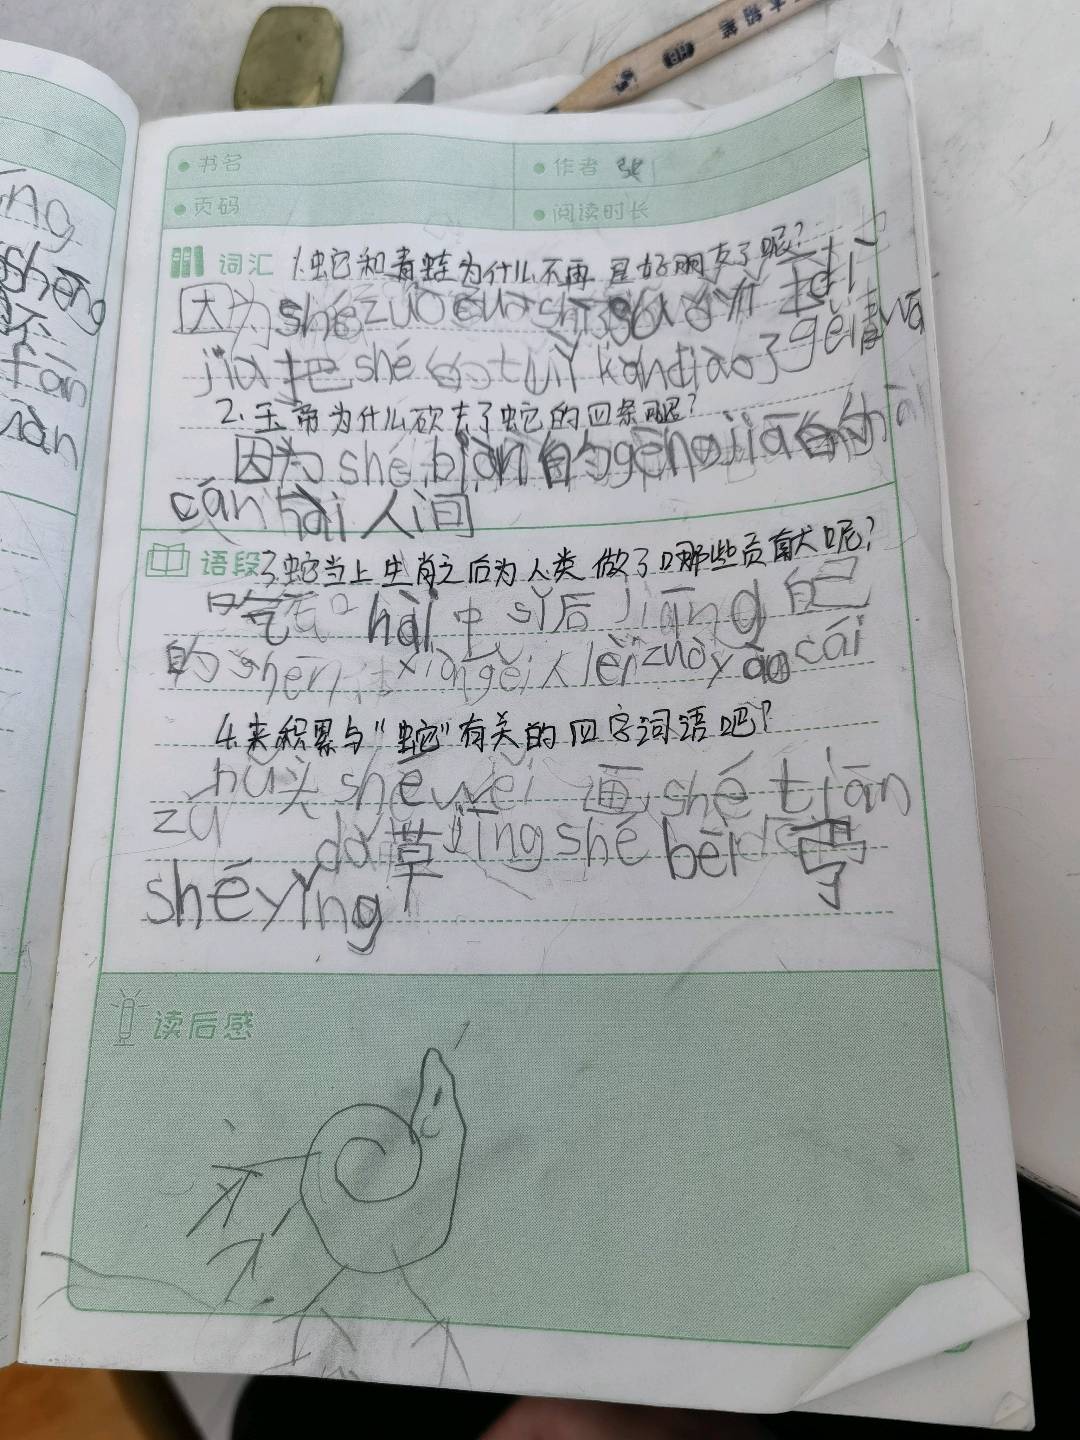 ng
shēng
还
fān
uàn
大铅笔
书名
作者 张
页码
阅读时长
词汇 1.蛇和青蛙为什么不再是好朋友了呢?
因为 shé zuò cuò shì
jiā 把 shé 的 tuǐ kǎn diào 了 gěi 青 wā
2.玉帝为什么砍去了蛇的四条腿?
因为 shé biàn 的 gèng jiā 的
cán hài 人间
语段 3.蛇当上生肖之后为人类做了哪些贡献呢?
hài 虫 sǐ 后 jiāng 自己
的 shēn 体 xiàn gěi 人 lèi zuò yào cái
4.来积累与“蛇”有关的四字词语吧?
hǔ 头 shé wěi 画 shé tiān
zú
dǎ 草 jīng shé bēi 弓
shé yǐng
读后感